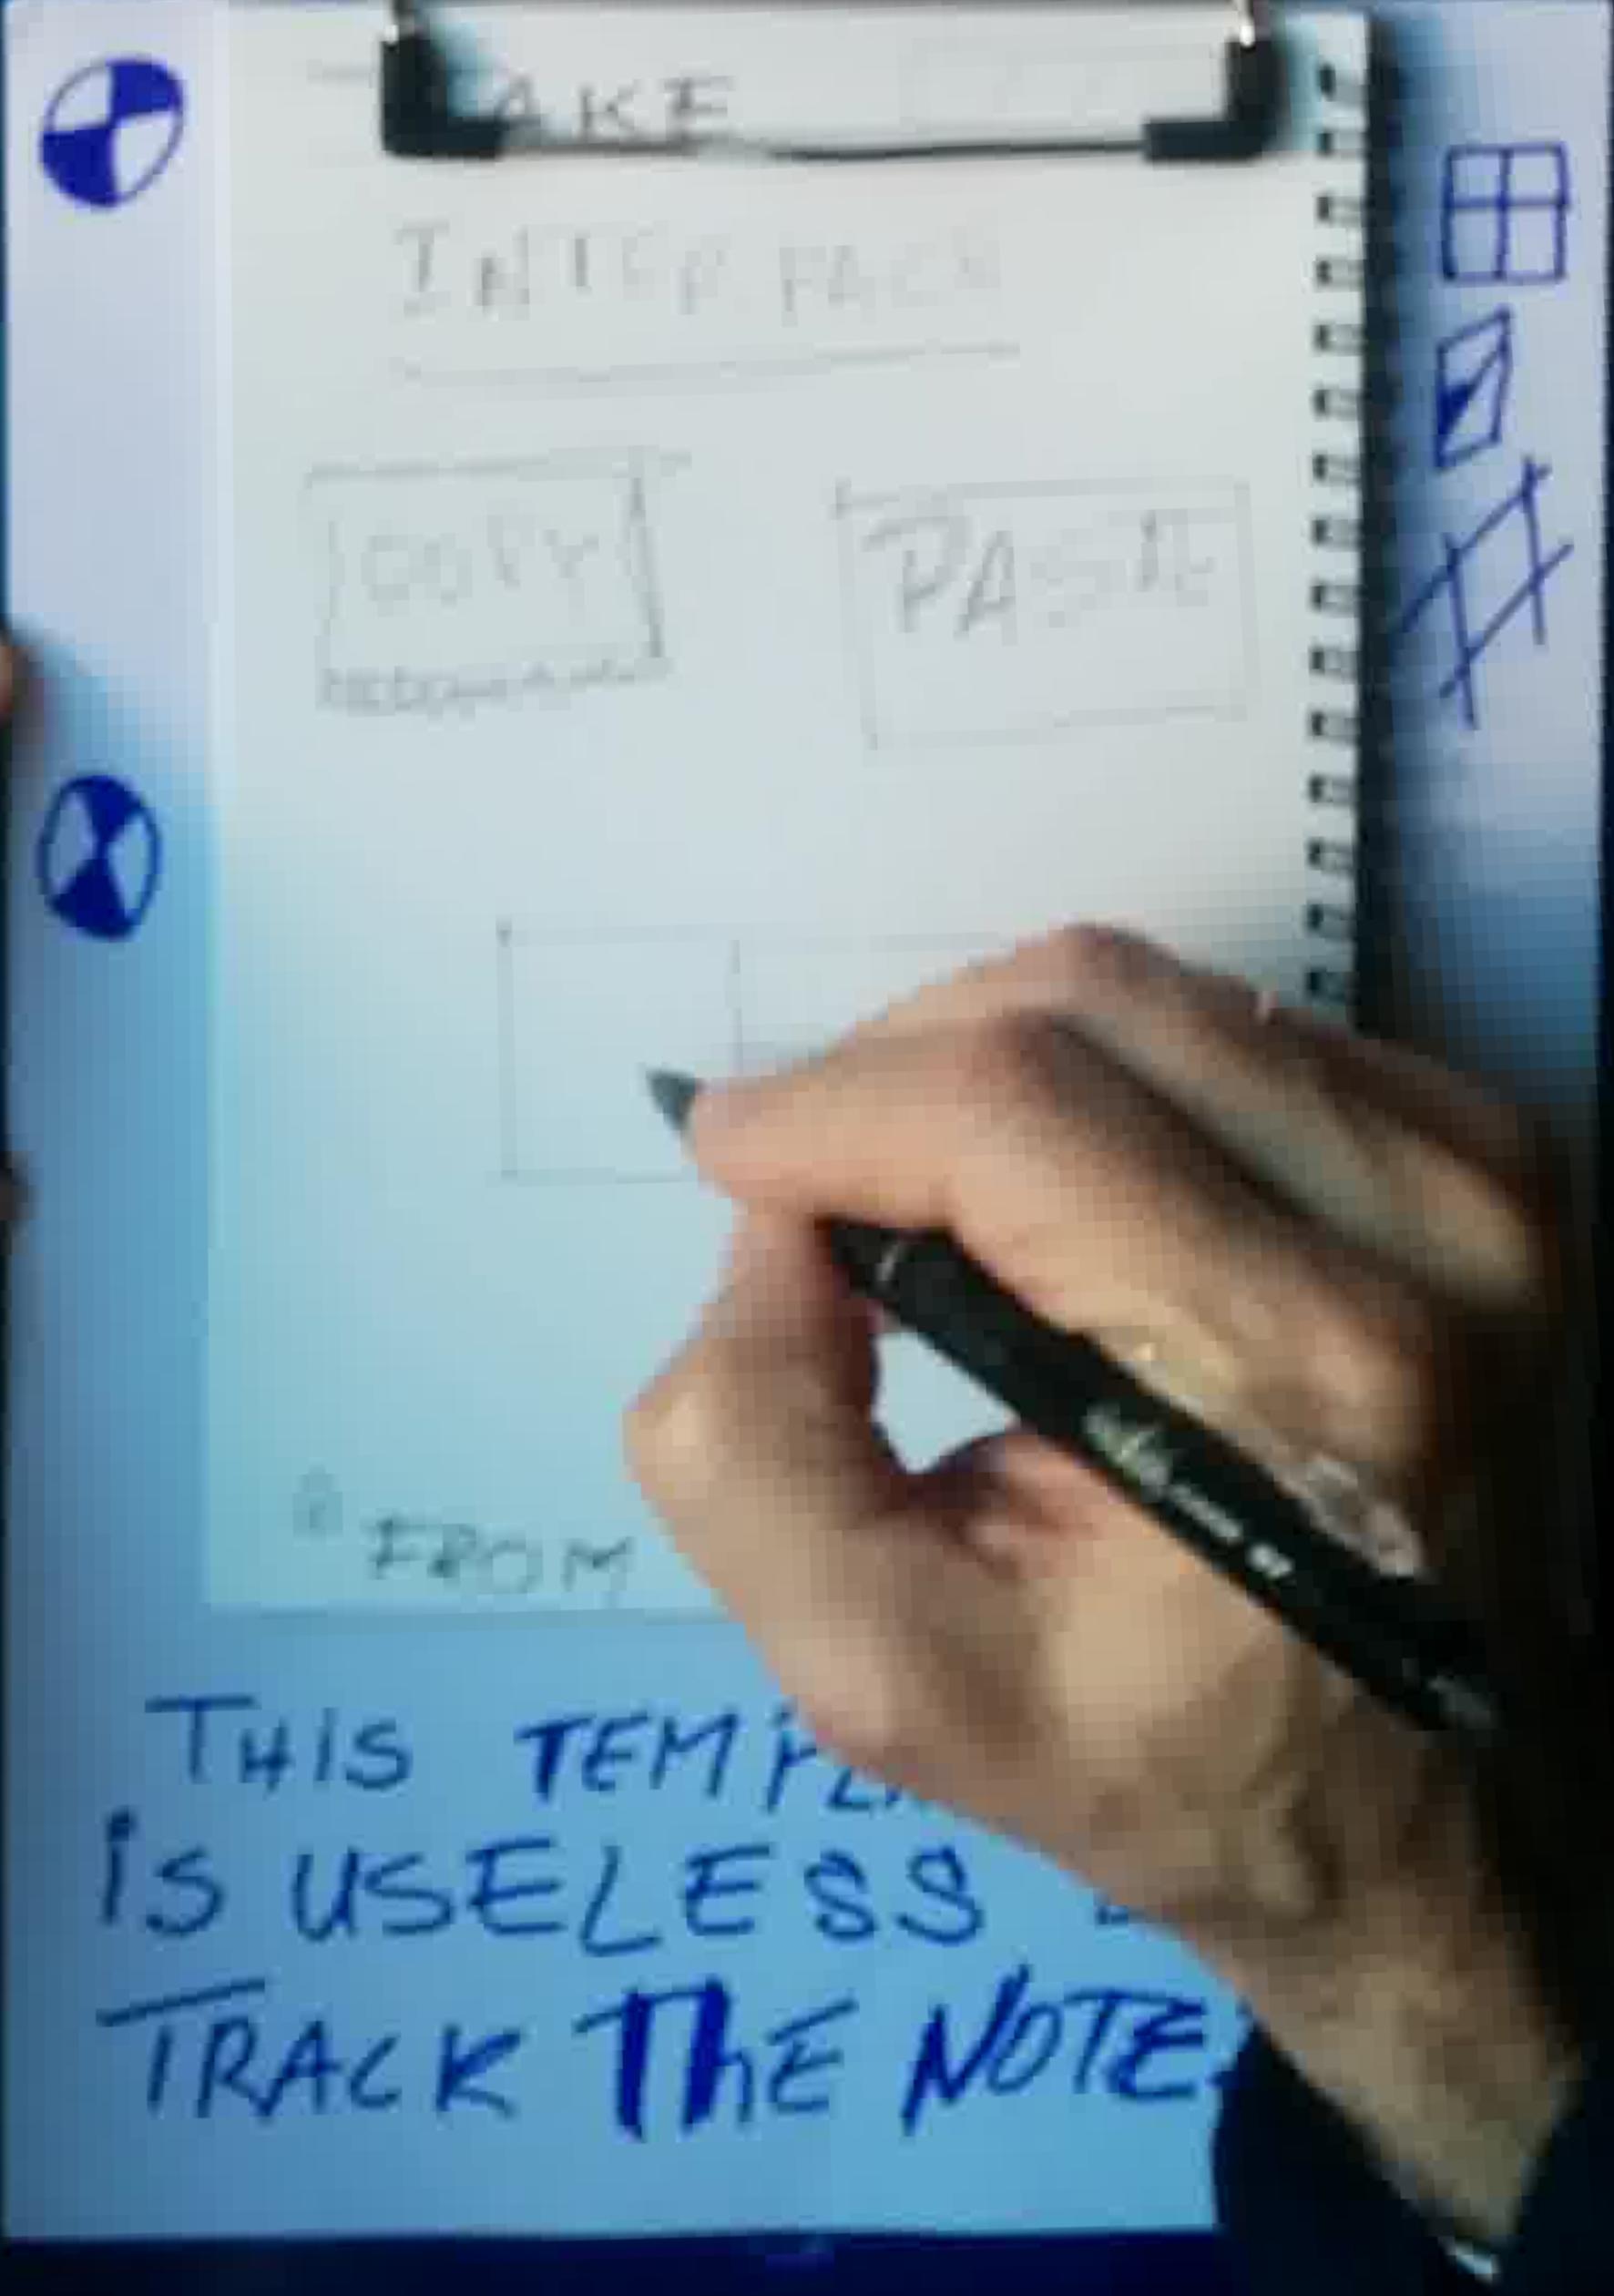 AKE
INTERFACE
COPY PASTE
FROM
THIS TEMPL
iS USELESS
TRACK ThE NOTE